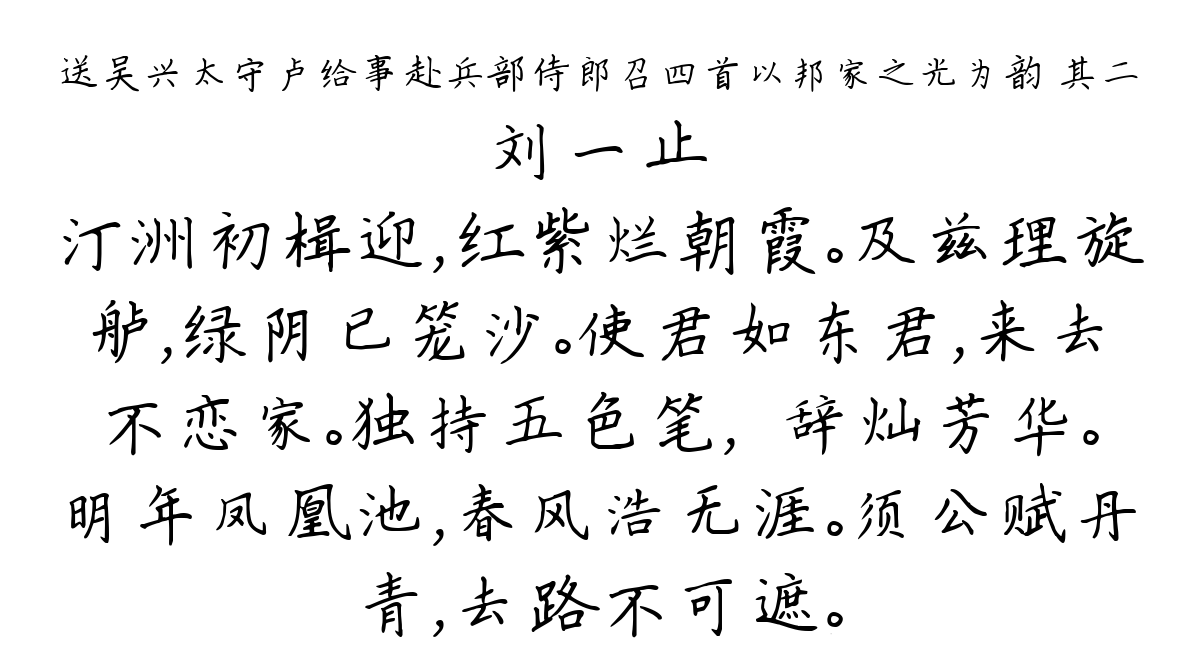 送吴兴太守卢给事赴兵部侍郎召四首以邦家之光为韵 其二
刘一止
汀洲初楫迎,红紫烂朝霞。及兹理旋
舻,绿阴已笼沙。使君如东君,来去
不恋家。独持五色笔, 辞灿芳华。
明年凤凰池,春风浩无涯。须公赋丹
青,去路不可遮。